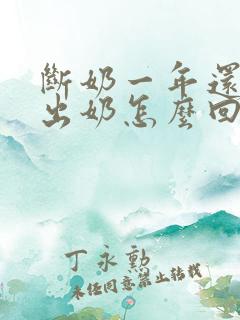 斷奶一年還
出奶怎麼回
丁永勳
未经同意禁止转载